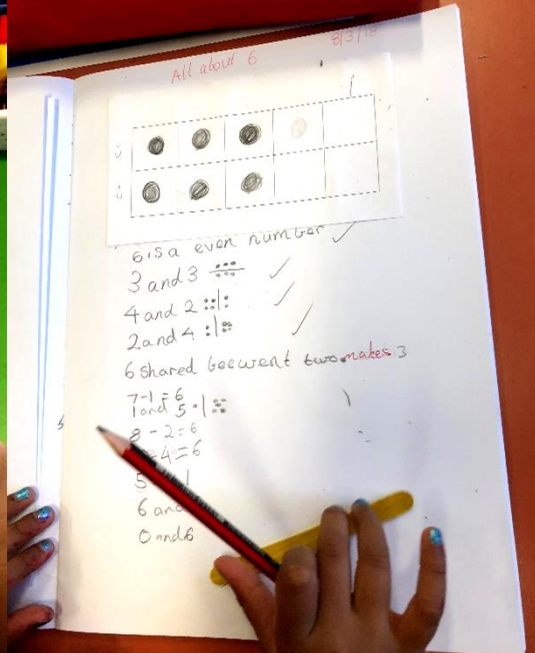 All about 6
8/3/18
6 is a even number
3 and 3
4 and 2
2 and 4
6 shared beewent two makes 3
7-1=6
1 and 5
8-2=6
-4=6
5
1
6 and
0 and 6